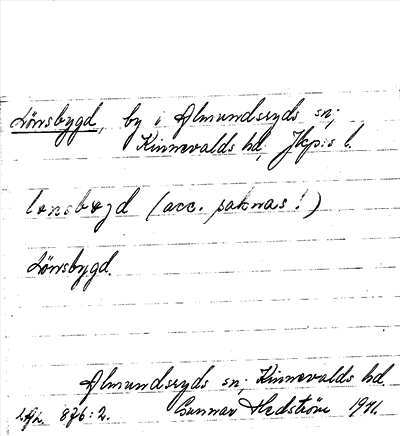 Lönsbygd, by i Almundsryds sn;
Kinnevalds hd, Jkpis l.
lønsbøgd (acc. saknas!)
Lönsbygd.
Almundsryds sn; Kinnevalds hd
876:2. Gunnar Hedström 1941.